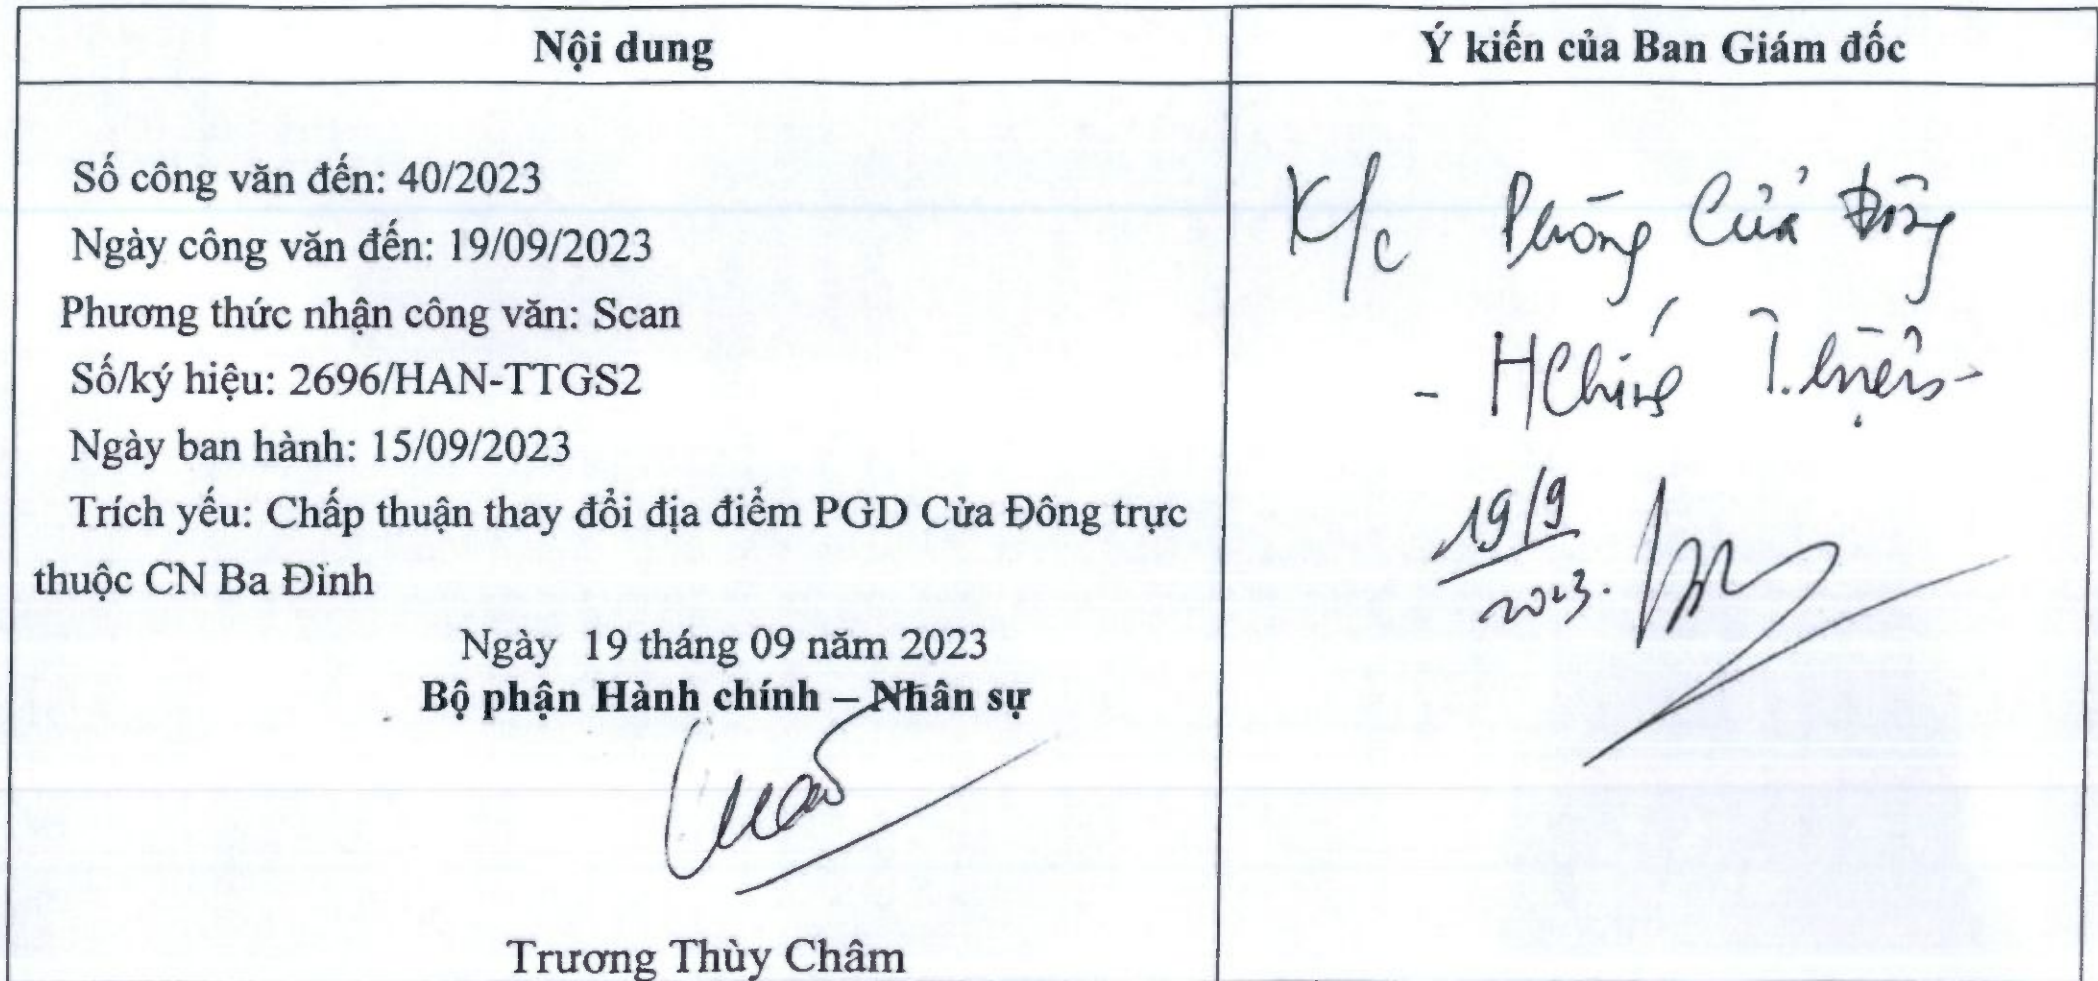 Nội dung
Ý kiến của Ban Giám đốc
Số công văn đến: 40/2023
Ngày công văn đến: 19/09/2023
Phương thức nhận công văn: Scan
Số/ký hiệu: 2696/HAN-TTGS2
Ngày ban hành: 15/09/2023
Trích yếu: Chấp thuận thay đổi địa điểm PGD Cửa Đông trực
thuộc CN Ba Đình
Ngày 19 tháng 09 năm 2023
Bộ phận Hành chính – Nhân sự
Trương Thùy Châm
K/c Phòng Cửa Đông
- HChính T.hiện
19/9
2023.